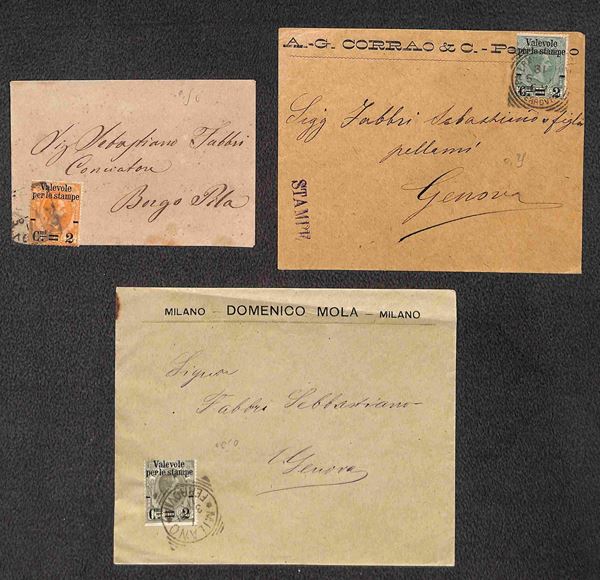 Sig Sebastiano Fabbri
Conciatore
Borgo Pila
Valevole
per le stampe
Cmi 2
A.-G. CORRAO & C. -
Valevole
per le stampe
Cmi 2
Sigg Fabbri Sebastiano & figli
pellami
Genova
STAMPE
MILANO - DOMENICO MOLA - MILANO
Signor
Fabbri Sebbastiano
Genova
Valevole
per le stampe
Cmi 2
MILANO
FERROVIA